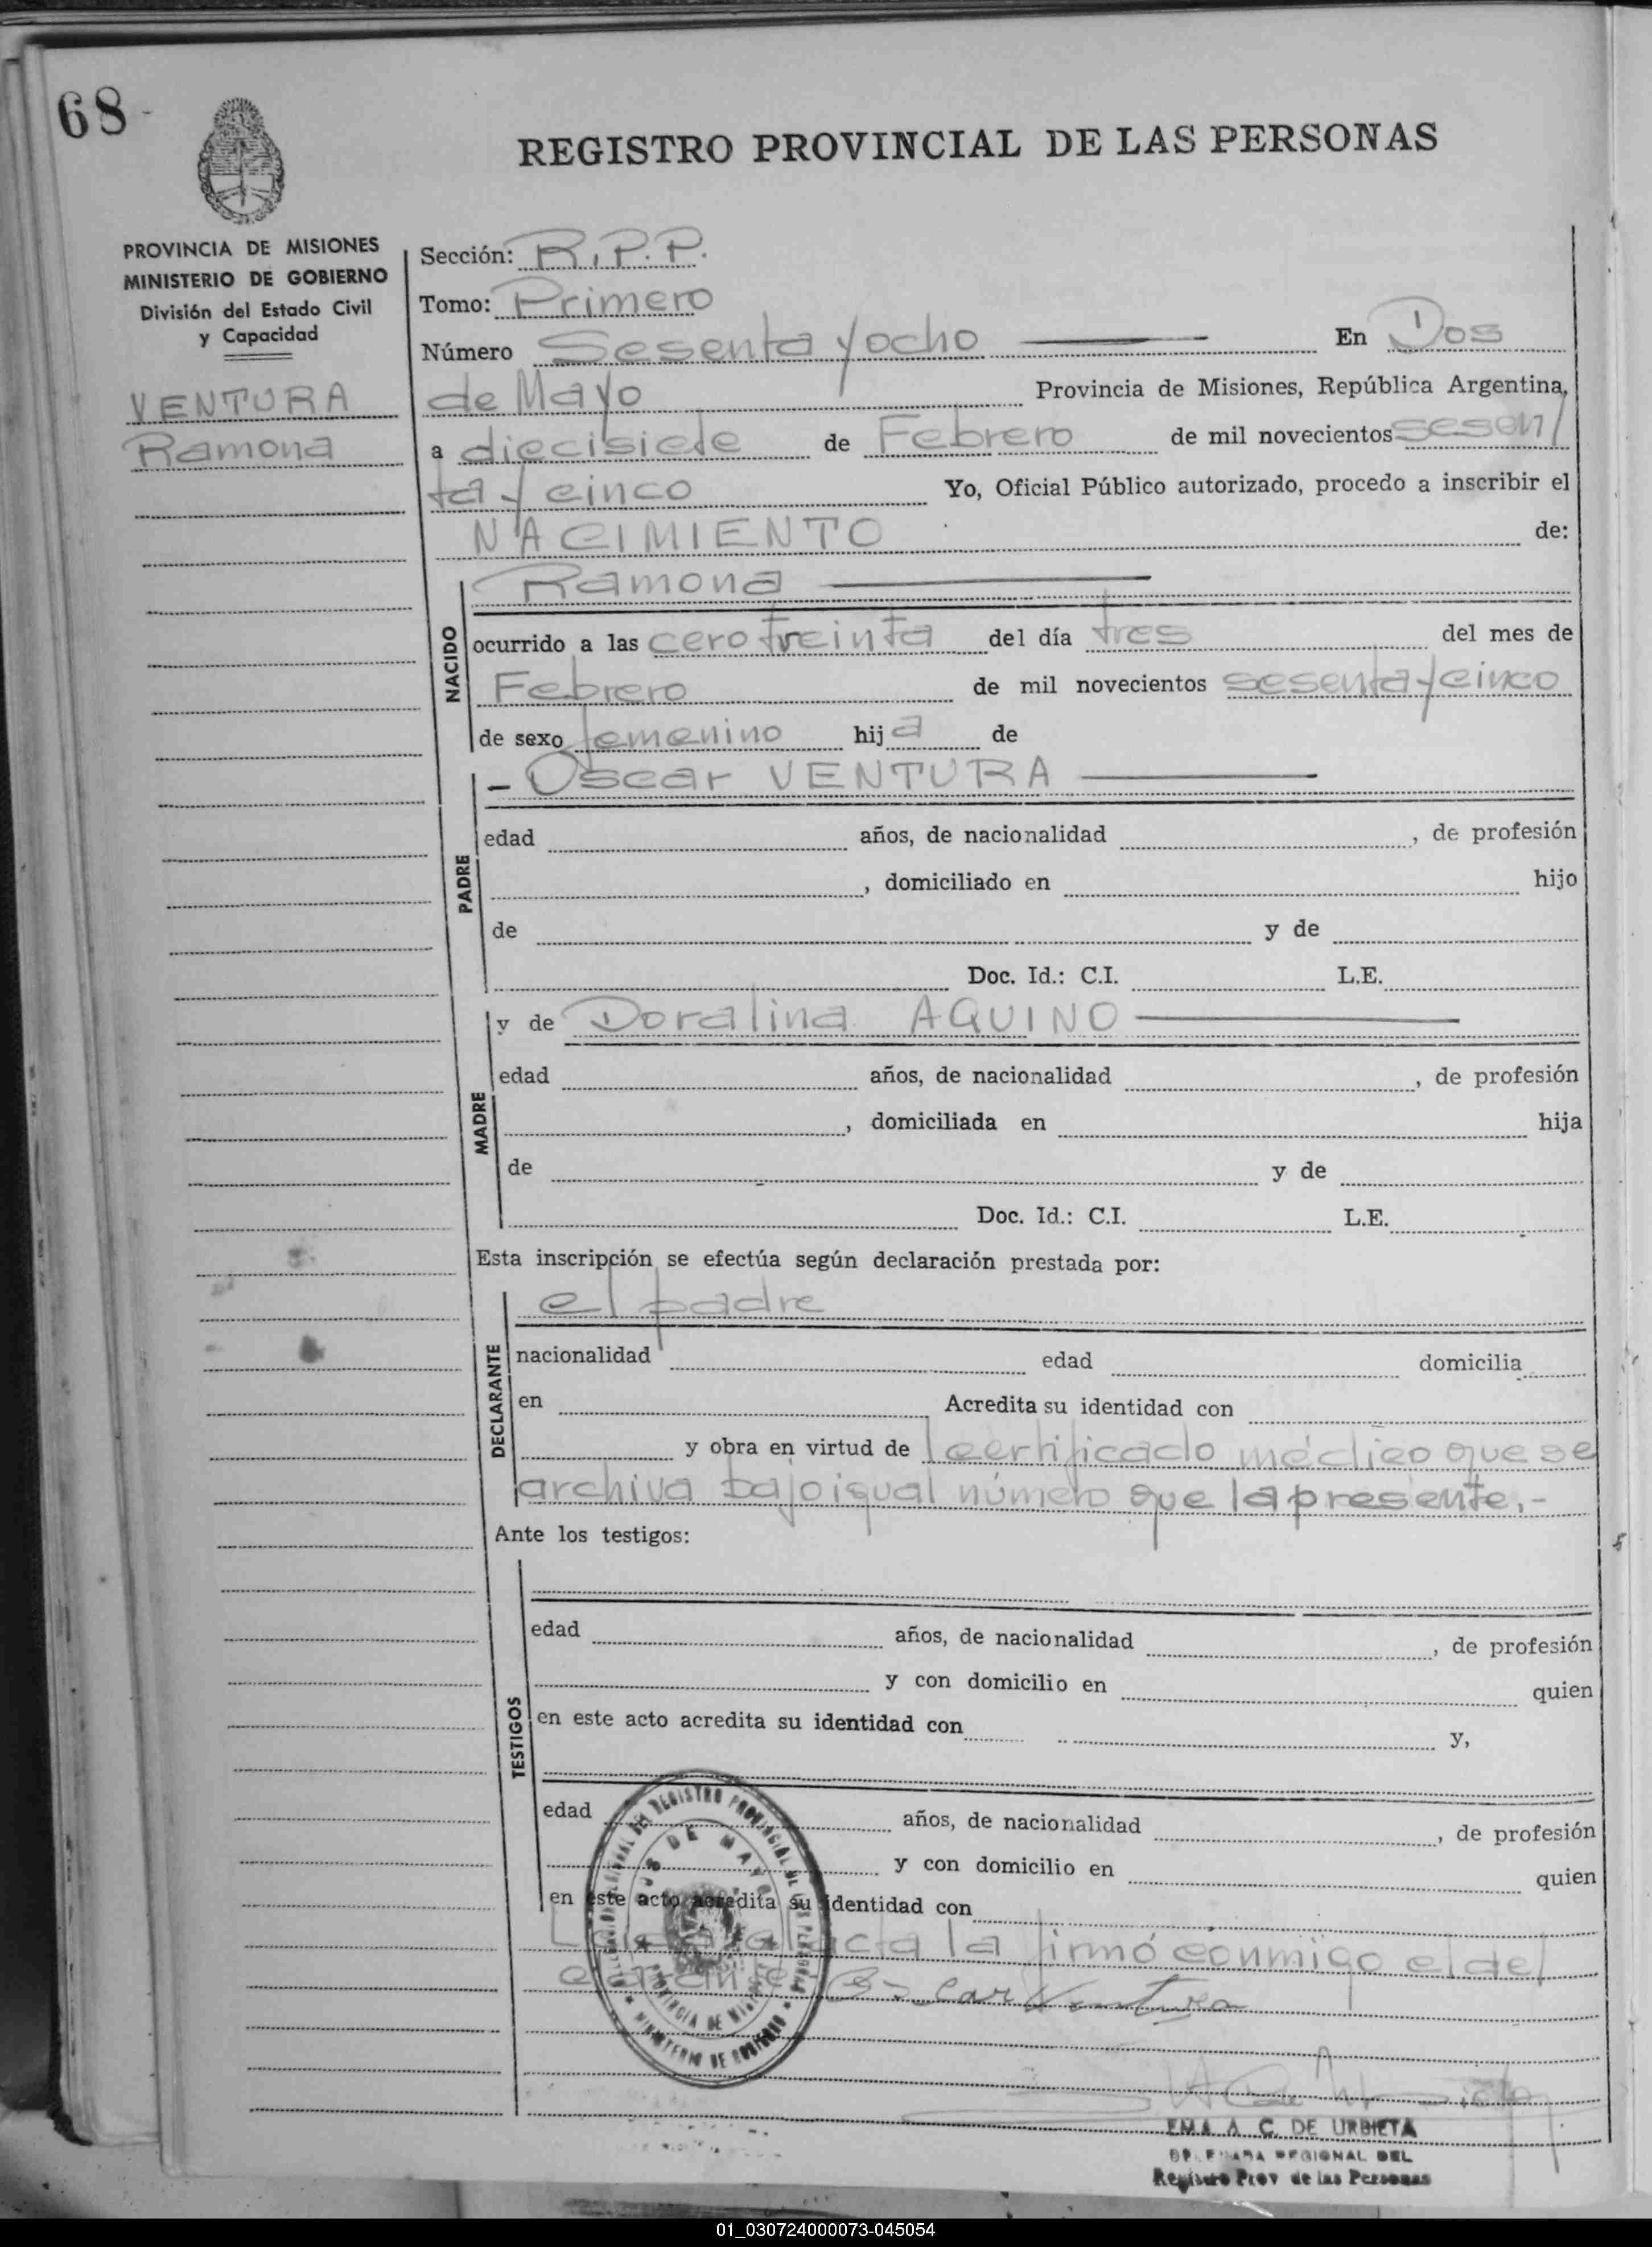 68
REGISTRO PROVINCIAL DE LAS PERSONAS
PROVINCIA DE MISIONES
MINISTERIO DE GOBIERNO
División del Estado Civil
y Capacidad
VENTURA
Ramona
Sección: R.P.P.
Tomo: Primero
Número Sesenta y ocho En Dos
de Mayo Provincia de Misiones, República Argentina,
a diecisiete de Febrero de mil novecientos sesen/
ta y cinco Yo, Oficial Público autorizado, procedo a inscribir el
NACIMIENTO de:
NACIDO
Ramona
ocurrido a las cero treinta del día tres del mes de
Febrero de mil novecientos sesenta y cinco
de sexo femenino hija de
PADRE
- Oscar VENTURA
edad años, de nacionalidad , de profesión
, domiciliado en hijo
de y de
Doc. Id.: C.I. L.E.
MADRE
y de Doralina AQUINO
edad años, de nacionalidad , de profesión
, domiciliada en hija
de y de
Doc. Id.: C.I. L.E.
Esta inscripción se efectúa según declaración prestada por:
DECLARANTE
el padre
nacionalidad edad domicilia
en Acredita su identidad con
y obra en virtud de l certificado médico que se
archiva bajo igual número que la presente.-
Ante los testigos:
TESTIGOS
edad años, de nacionalidad , de profesión
y con domicilio en quien
en este acto acredita su identidad con y,
edad años, de nacionalidad , de profesión
y con domicilio en quien
en este acto acredita su identidad con
Leída el acta la firmó conmigo el del
Oscar Ventura
DEL REGISTRO PROVINCIAL DE LAS PERSONAS
DOS DE MAYO
PROVINCIA DE MISIONES
MINISTERIO DE GOBIERNO
EMA A. C. DE URBIETA
REGIONAL DEL
Registro Prov de las Personas
01_030724000073-045054